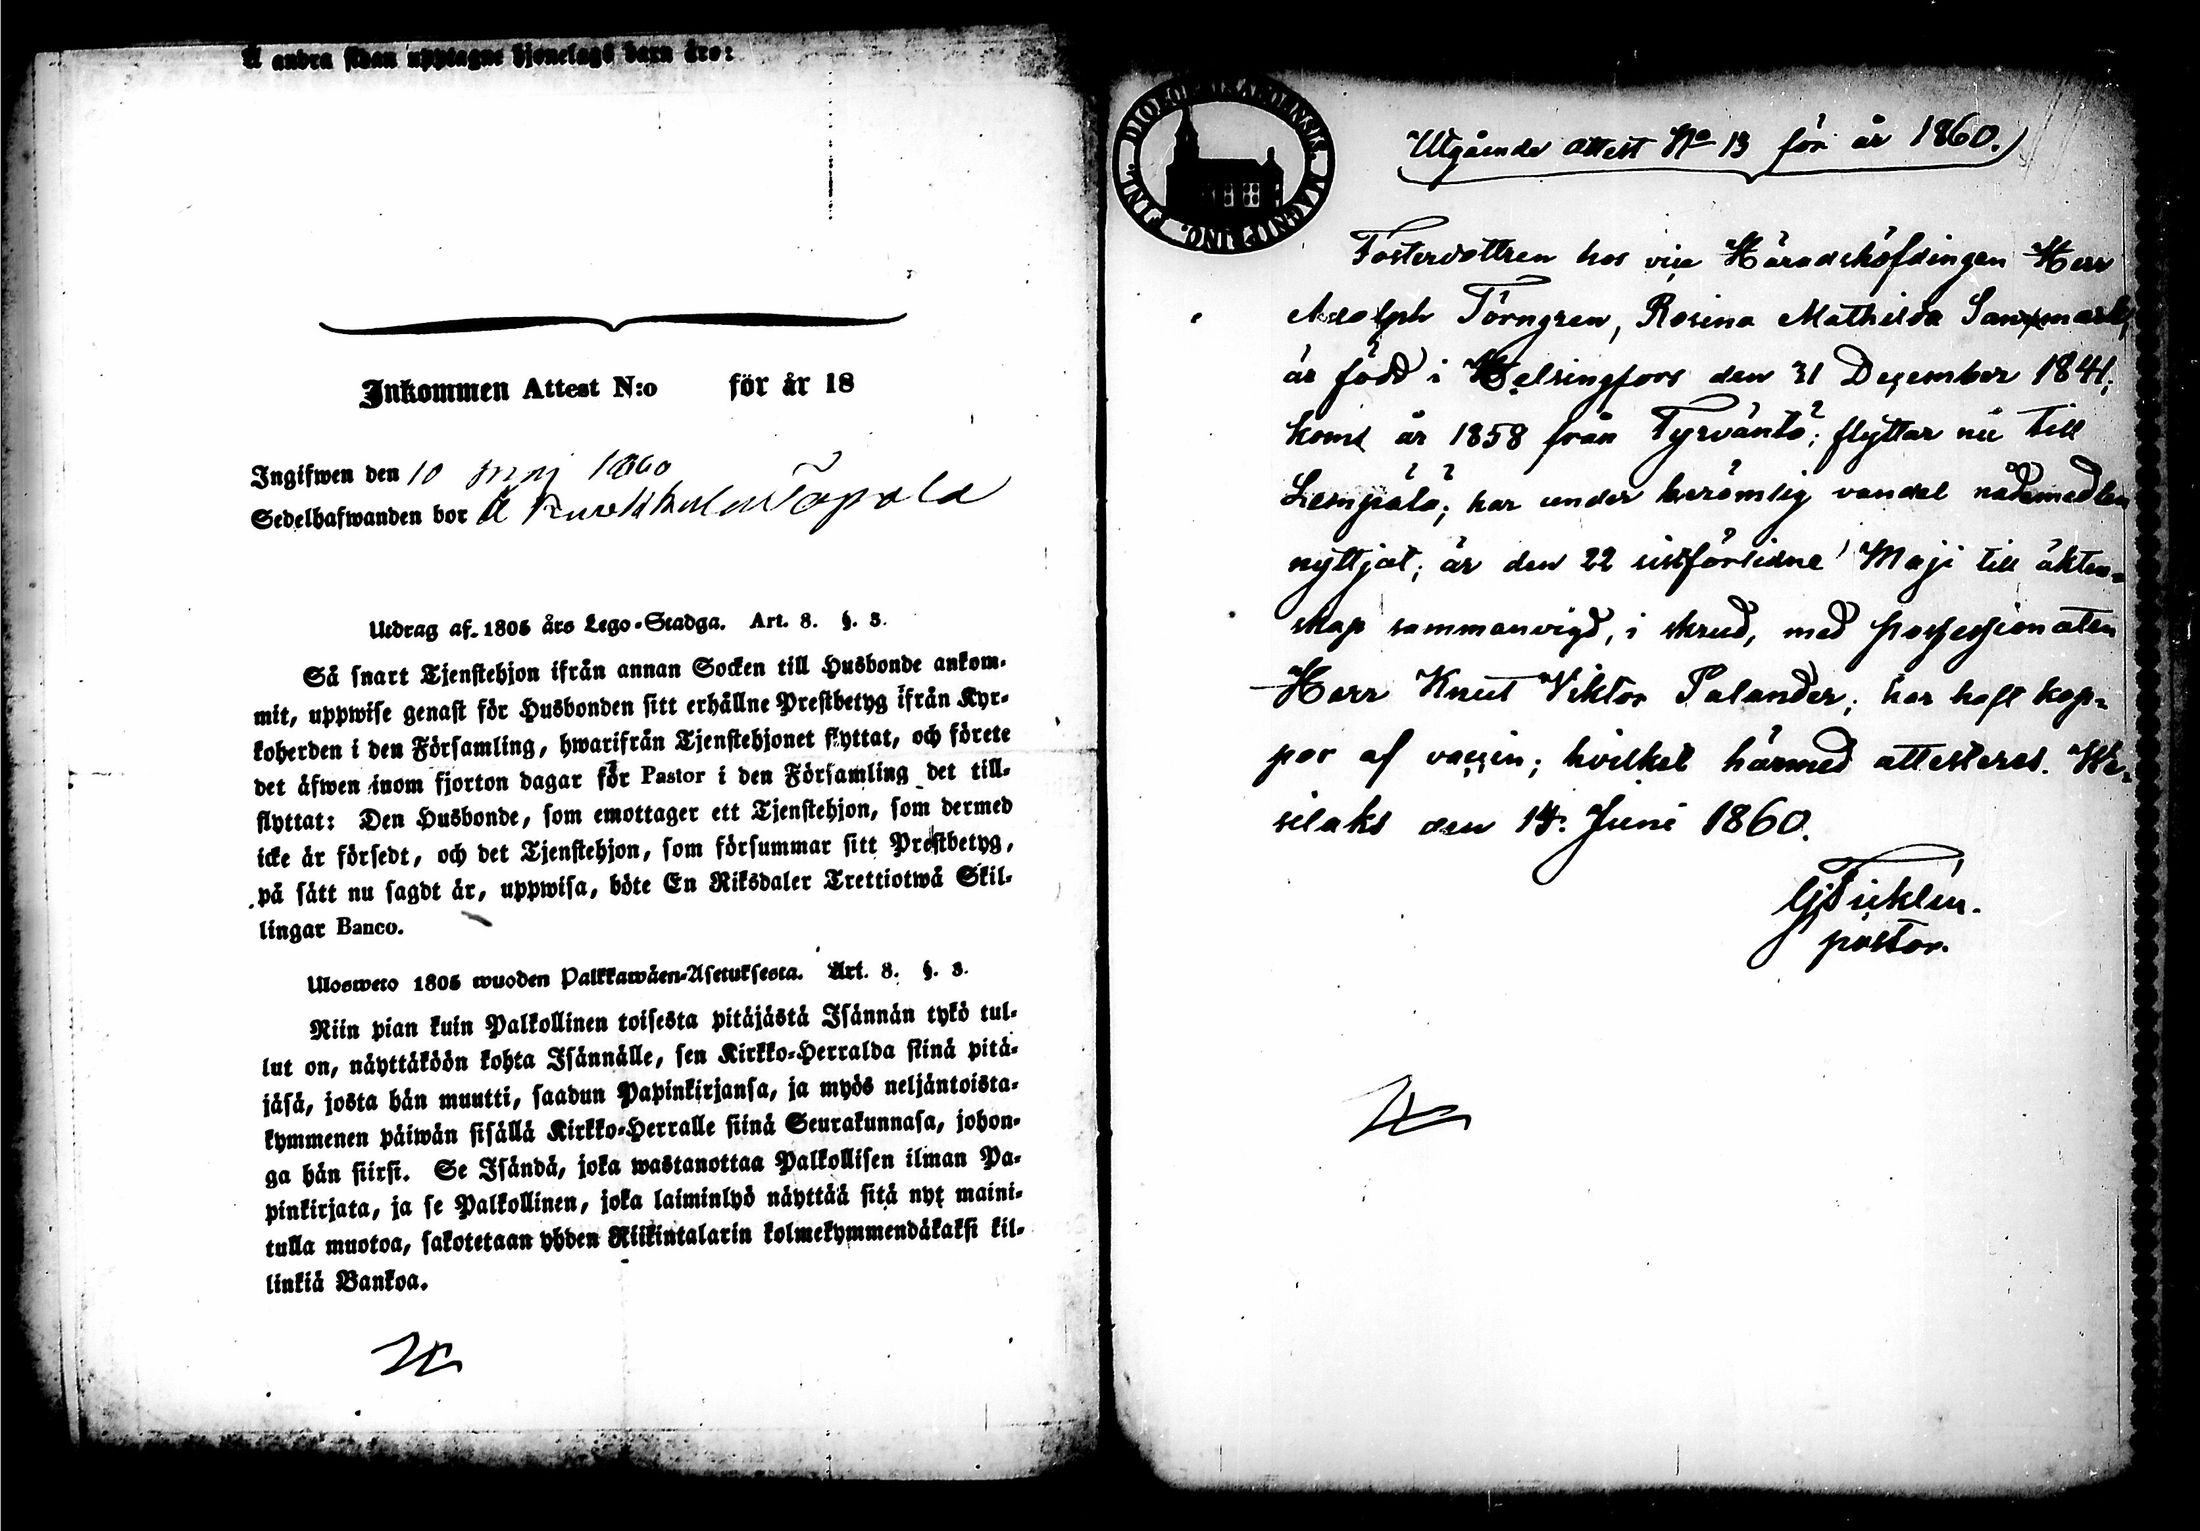 Å andra sidan upptagne hjonelags barn äro:
Inkommen Attest N:o för år 18
Ingifwen den 10 Maj 1860
Sedelhafwanden bor å
Utdrag af 1805 års Lego-Stadga. Art. 8. §. 3.
Så snart Tjenstehjon ifrån annan Socken till Husbonde ankom-
mit, uppwise genast för Husbonden sitt erhållne Prestbetyg ifrån Kyr-
koherden i den Församling, hwarifrån Tjenstehjonet flyttat, och förete
det äfwen inom fjorton dagar för Pastor i den Församling det till-
flyttat: Den Husbonde, som emottager ett Tjenstehjon, som dermed
icke är försedt, och det Tjenstehjon, som försummar sitt Prestbetyg,
på sätt nu sagdt är, uppwisa, böte En Riksdaler Trettiotwå Skil-
lingar Banco.
Ulosweto 1805 wuoden Palkkawäen-Asetuksesta. Art. 8. §. 3.
Niin pian kuin Palkollinen toisesta pitäjästä Isännän tykö tul-
lut on, näyttäköön kohta Isännälle, sen Kirkko-Herralda siinä pitä-
jäsä, josta hän muutti, saadun Papinkirjansa, ja myös neljäntoista-
kymmenen päiwän sisällä Kirkko-Herralle siinä Seurakunnasa, johon-
ga hän siirsi. Se Isändä, joka wastanottaa Palkollisen ilman Pa-
pinkirjata, ja se Palkollinen, joka laiminlyö näyttää sitä nyt maini-
tulla muotoa, sakotetaan yhden Riikintalarin kolmekymmendäkaksi kil-
linkiä Bankoa.
MAGNI PRINC. FINL.
Utgående attest No 13 för år 1860.
Fosterdottren hos vice Häradshöfdingen Herr
Adolph Törngren, Rosina Mathilda Sanmark,
är född i Helsingfors den 31 December 1841;
koms år 1858 från Tyrväntö; flyttar nu till
Lempälä; har under berömlig vandel nådemedlen
nyttjat; är den 22 sistförlidne Maji till äkten-
skap sammanvigd, i skrud, med possessionaten
Herr Knut Viktor Palander; har haft kop-
por af vaccin; hvilket härmed attesteras. We-
silaks den 14. Juni 1860.
pastor.